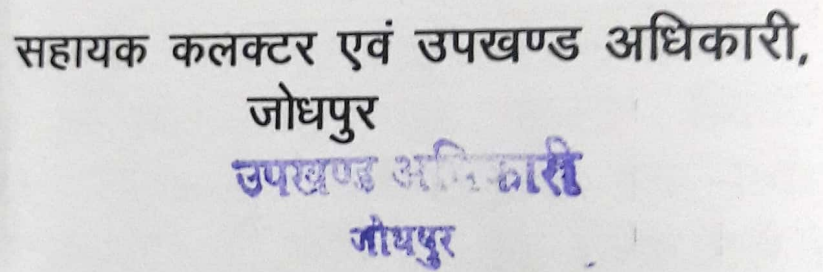 सहायक कलक्टर एवं उपखण्ड अधिकारी,
जोधपुर
उपखण्ड अधिकारी
जोधपुर